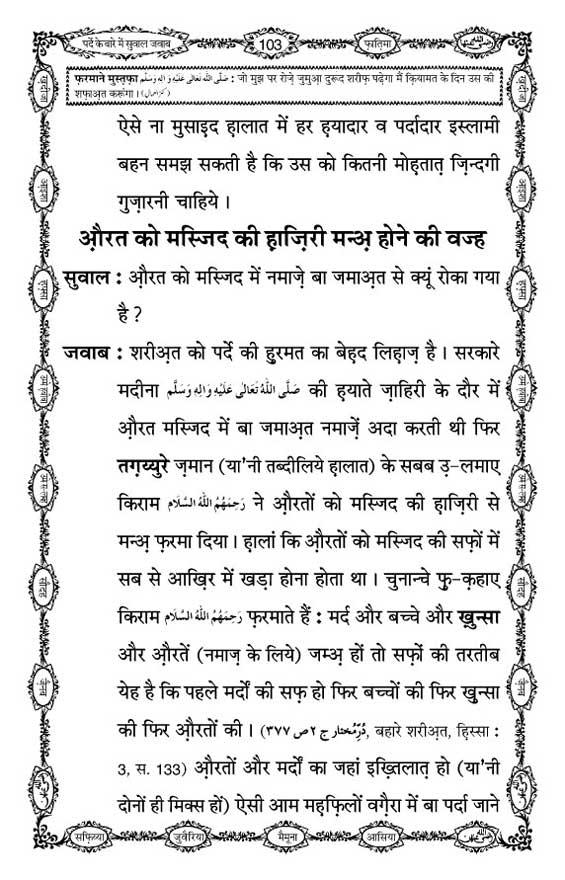 पर्दे के बारे में सुवाल जवाब
103
फ़ातिमा
फ़रमाने मुस्तफ़ा صَلَّى اللهُ تَعَالٰى عَلَيْهِ وَاٰلِهٖ وَسَلَّم : जो मुझ पर रोज़े जुमुआ़ दुरूद शरीफ़ पढ़ेगा मैं क़ियामत के दिन उस की
शफ़ाअ़त करूंगा ।
ऐसे ना मुसाइद हालात में हर ह़यादार व पर्दादार इस्लामी
बहन समझ सकती है कि उस को कितनी मोह़तात़ ज़िन्दगी
गुज़ारनी चाहिये ।
औ़रत को मस्जिद की ह़ाज़िरी मन्अ़ होने की वज्ह
सुवाल : औ़रत को मस्जिद में नमाज़े बा जमाअ़त से क्यूं रोका गया
है ?
जवाब : शरीअ़त को पर्दे की हुरमत का बेहद लिहाज़ है । सरकारे
मदीना صَلَّى اللهُ تَعَالٰى عَلَيْهِ وَاٰلِهٖ وَسَلَّم की ह़याते ज़ाहिरी के दौर में
औ़रत मस्जिद में बा जमाअ़त नमाज़ें अदा करती थी फिर
तग़य्युरे ज़मान (या'नी तब्दीलिये ह़ालात) के सबब उ़-लमाए
किराम رَحِمَهُمُ اللهُ السَّلَام ने औ़रतों को मस्जिद की ह़ाज़िरी से
मन्अ़ फ़रमा दिया । हालां कि औ़रतों को मस्जिद की सफ़ों में
सब से आख़िर में खड़ा होना होता था । चुनान्चे फु-क़हाए
किराम رَحِمَهُمُ اللهُ السَّلَام फ़रमाते हैं : मर्द और बच्चे और ख़ुन्सा
और औ़रतें (नमाज़ के लिये) जम्अ़ हों तो सफ़ों की तरतीब
येह है कि पहले मर्दों की सफ़ हो फिर बच्चों की फिर ख़ुन्सा
की फिर औ़रतों की । (دُرِّمُختار ج ٢ ص ٣٧٧, बहारे शरीअ़त, हिस्सा :
3, स. 133) औ़रतों और मर्दों का जहां इख़्तिलात़ हो (या'नी
दोनों ही मिक्स हों) ऐसी आम मह़फ़िलों वग़ैरा में बा पर्दा जाने
सफ़िय्या
जुवैरिया
मैमूना
आसिया